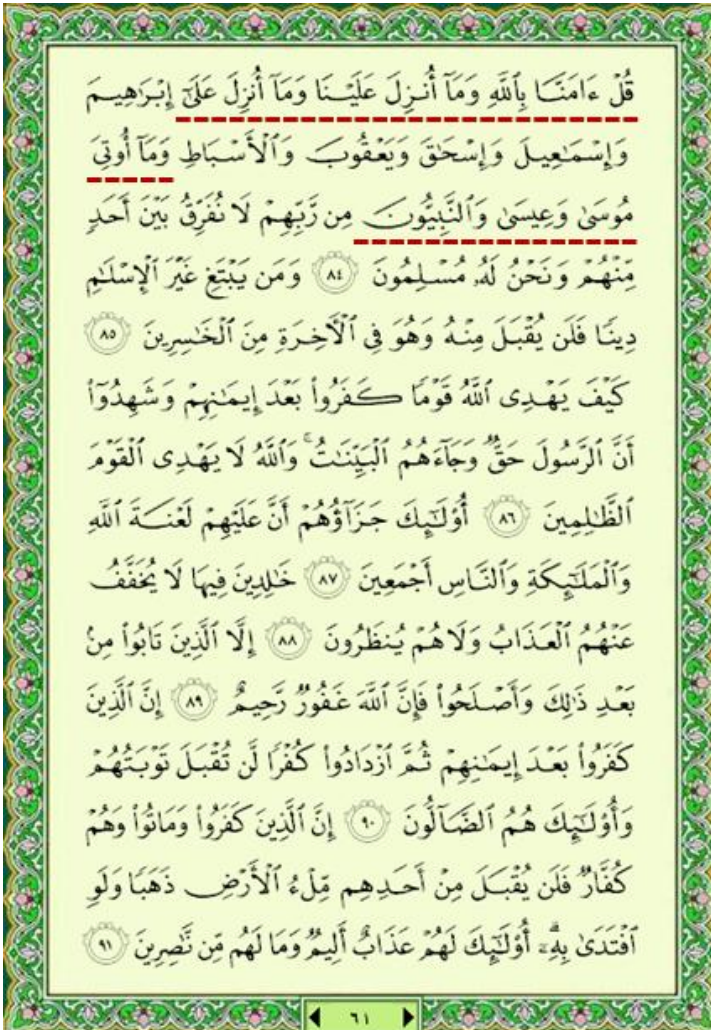 قُلْ ءَامَنَّا بِٱللَّهِ وَمَآ أُنزِلَ عَلَيْنَا وَمَآ أُنزِلَ عَلَىٰٓ إِبْرَٰهِيمَ
وَإِسْمَٰعِيلَ وَإِسْحَٰقَ وَيَعْقُوبَ وَٱلْأَسْبَاطِ وَمَآ أُوتِىَ
مُوسَىٰ وَعِيسَىٰ وَٱلنَّبِيُّونَ مِن رَّبِّهِمْ لَا نُفَرِّقُ بَيْنَ أَحَدٍ
مِّنْهُمْ وَنَحْنُ لَهُۥ مُسْلِمُونَ ٨٤ وَمَن يَبْتَغِ غَيْرَ ٱلْإِسْلَٰمِ
دِينًا فَلَن يُقْبَلَ مِنْهُ وَهُوَ فِى ٱلْءَاخِرَةِ مِنَ ٱلْخَٰسِرِينَ ٨٥
كَيْفَ يَهْدِى ٱللَّهُ قَوْمًا كَفَرُوا۟ بَعْدَ إِيمَٰنِهِمْ وَشَهِدُوٓا۟
أَنَّ ٱلرَّسُولَ حَقٌّ وَجَآءَهُمُ ٱلْبَيِّنَٰتُ ۚ وَٱللَّهُ لَا يَهْدِى ٱلْقَوْمَ
ٱلظَّٰلِمِينَ ٨٦ أُو۟لَٰٓئِكَ جَزَآؤُهُمْ أَنَّ عَلَيْهِمْ لَعْنَةَ ٱللَّهِ
وَٱلْمَلَٰٓئِكَةِ وَٱلنَّاسِ أَجْمَعِينَ ٨٧ خَٰلِدِينَ فِيهَا لَا يُخَفَّفُ
عَنْهُمُ ٱلْعَذَابُ وَلَا هُمْ يُنظَرُونَ ٨٨ إِلَّا ٱلَّذِينَ تَابُوا۟ مِنۢ
بَعْدِ ذَٰلِكَ وَأَصْلَحُوا۟ فَإِنَّ ٱللَّهَ غَفُورٌ رَّحِيمٌ ٨٩ إِنَّ ٱلَّذِينَ
كَفَرُوا۟ بَعْدَ إِيمَٰنِهِمْ ثُمَّ ٱزْدَادُوا۟ كُفْرًا لَّن تُقْبَلَ تَوْبَتُهُمْ
وَأُو۟لَٰٓئِكَ هُمُ ٱلضَّآلُّونَ ٩٠ إِنَّ ٱلَّذِينَ كَفَرُوا۟ وَمَاتُوا۟ وَهُمْ
كُفَّارٌ فَلَن يُقْبَلَ مِنْ أَحَدِهِم مِّلْءُ ٱلْأَرْضِ ذَهَبًا وَلَوِ
ٱفْتَدَىٰ بِهِۦٓ ۗ أُو۟لَٰٓئِكَ لَهُمْ عَذَابٌ أَلِيمٌ وَمَا لَهُم مِّن نَّٰصِرِينَ ٩١
٦١